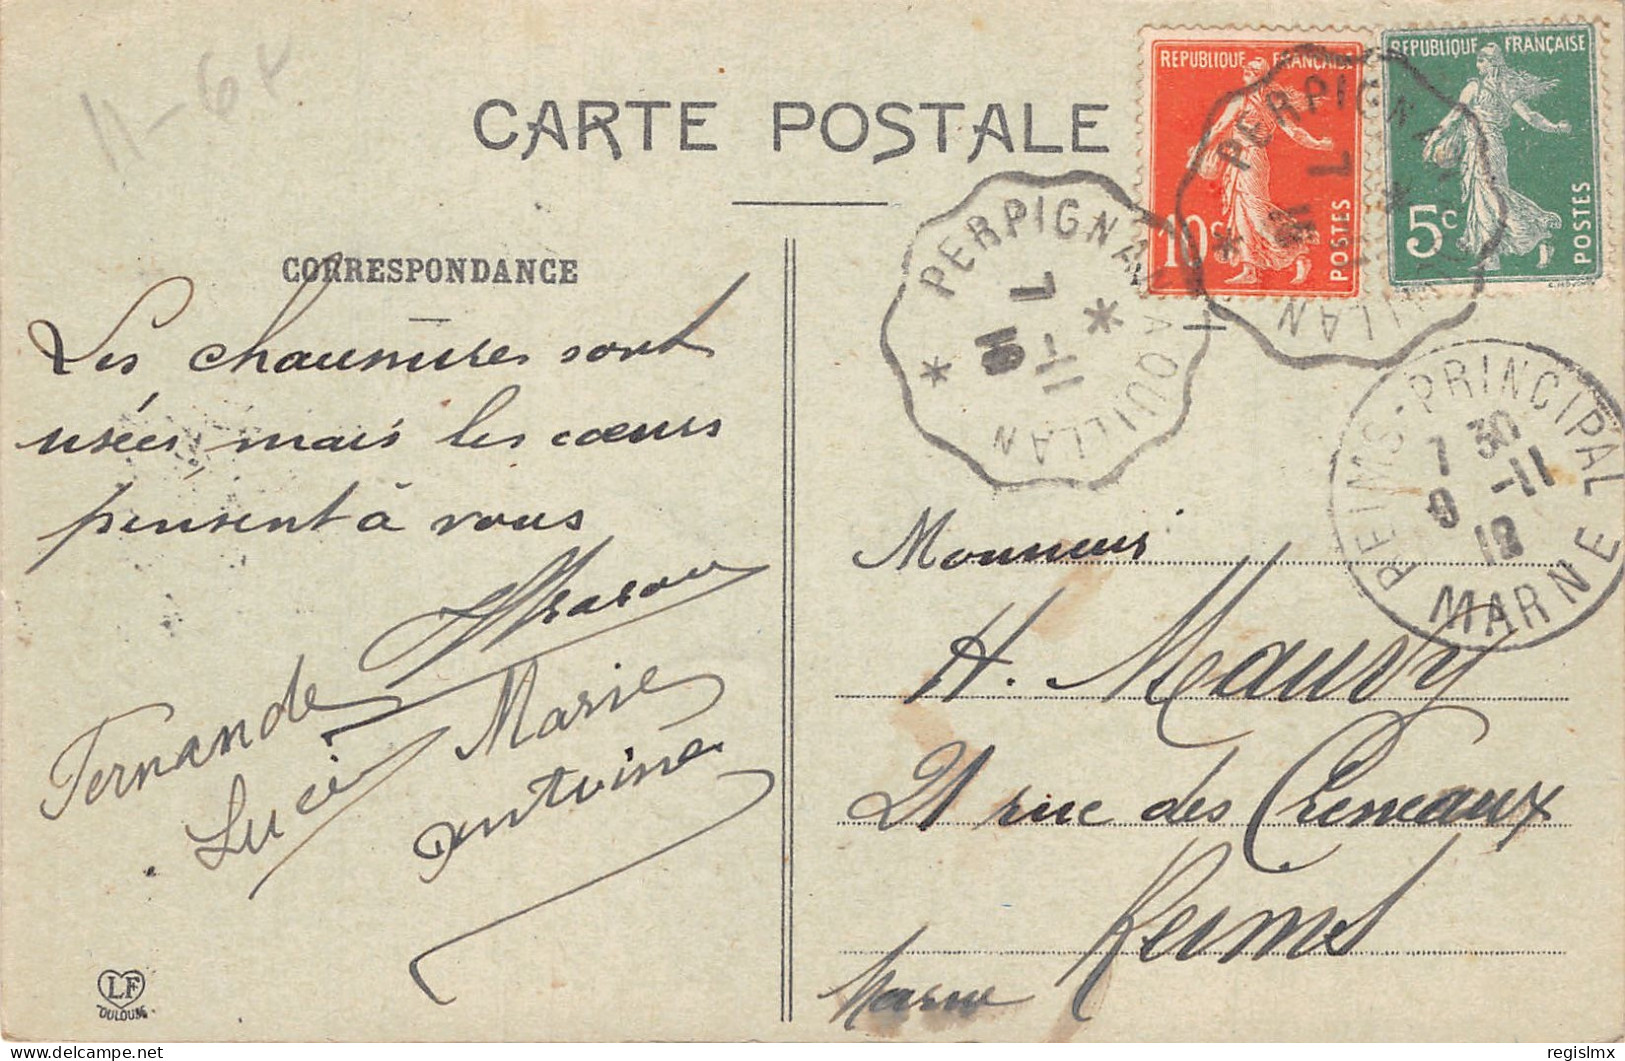 11-64
CARTE POSTALE
REPUBLIQUE FRANÇAISE
10c POSTES
REPUBLIQUE FRANÇAISE
5c POSTES
PERPIGNAN A QUILLAN
7 -11
PERPIGNAN QUILLAN
7
REIMS-PRINCIPAL
7 30
9 -11
MARNE
CORRESPONDANCE
Les chaumières sont
usées, mais les cœurs
pensent à vous
Fernande
Lucie
Marie
Antoine
Monsieur
H. Maury
21 rue des Créneaux
Reims
Marne
LF
TOULOUSE
https://www.delcampe.net
regislmx